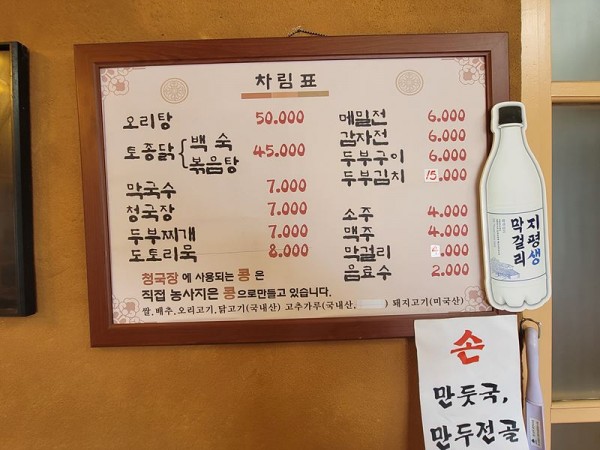 차림표
오리탕 50.000
토종닭 { 백숙 볶음탕 45.000
막국수 7.000
청국장 7.000
두부찌개 7.000
도토리묵 8.000
메밀전 6.000
감자전 6.000
두부구이 6.000
두부김치 15.000
소주 4.000
맥주 4.000
막걸리 .000
음료수 2.000
청국장 에 사용되는 콩 은
직접 농사지은 콩 으로만들고 있습니다.
쌀,배추,오리고기,닭고기(국내산) 고추가루(국내산, ) 돼지고기(미국산)
지평생
막걸리
손
만둣국,
만두전골